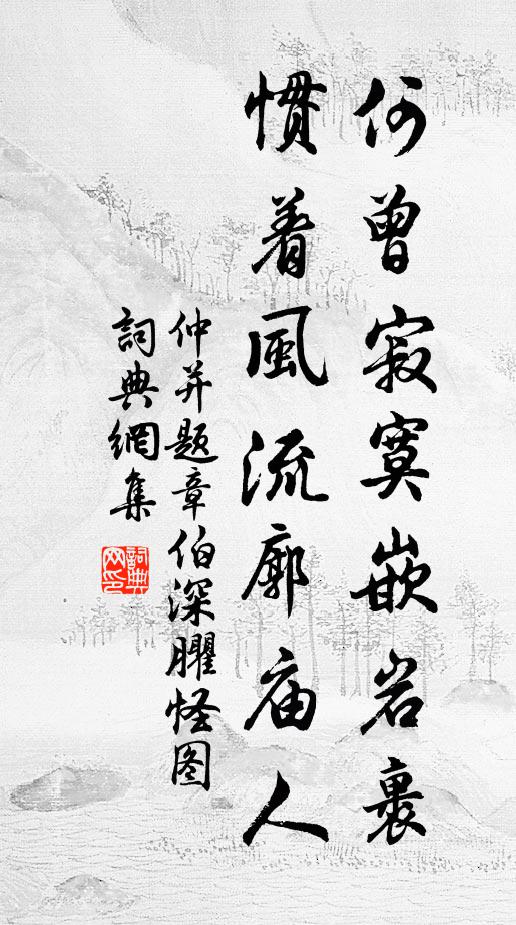 何曾寂寞嵌岩裏
慣着風流廓庙人
仲并题章伯深臞怪图
詞典網集
詞典网印